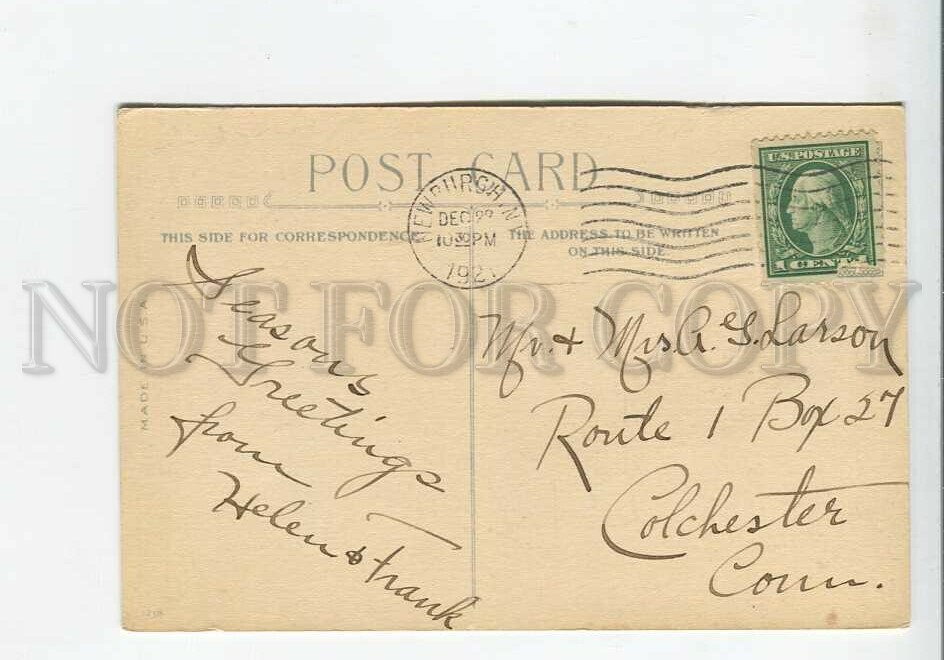 POST CARD
NEWBURGH N.
DEC 22
10 30 PM
1921
U.S. POSTAGE
1 CENT 1
THIS SIDE FOR CORRESPONDENCE
THE ADDRESS TO BE WRITTEN
ON THIS SIDE.
Seasons
Greetings
from
Helen & Frank
Mr. & Mrs. A. G. Larson
Route 1 Box 27
Colchester
Conn.
MADE IN U.S.A.
NOT FOR COPY